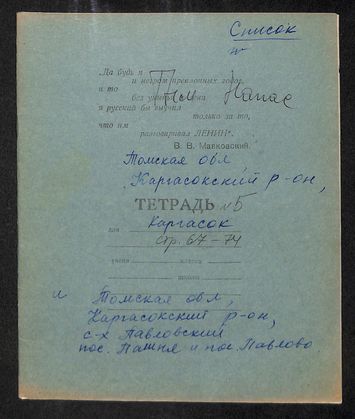 Список
„Да будь я
и негром преклонных годов
и то
без унынья и лени
я русский бы выучил
только за то,
что им
разговаривал ЛЕНИН".
В. В. Маяковский.
Томская обл
Каргасокский р-он,
ТЕТРАДЬ №5
для Каргасок
стр. 67-74
учени класса
школы
и Томская обл,
Каргасокский р-он,
с-х Павловский
пос. Пашня и пос. Павлово